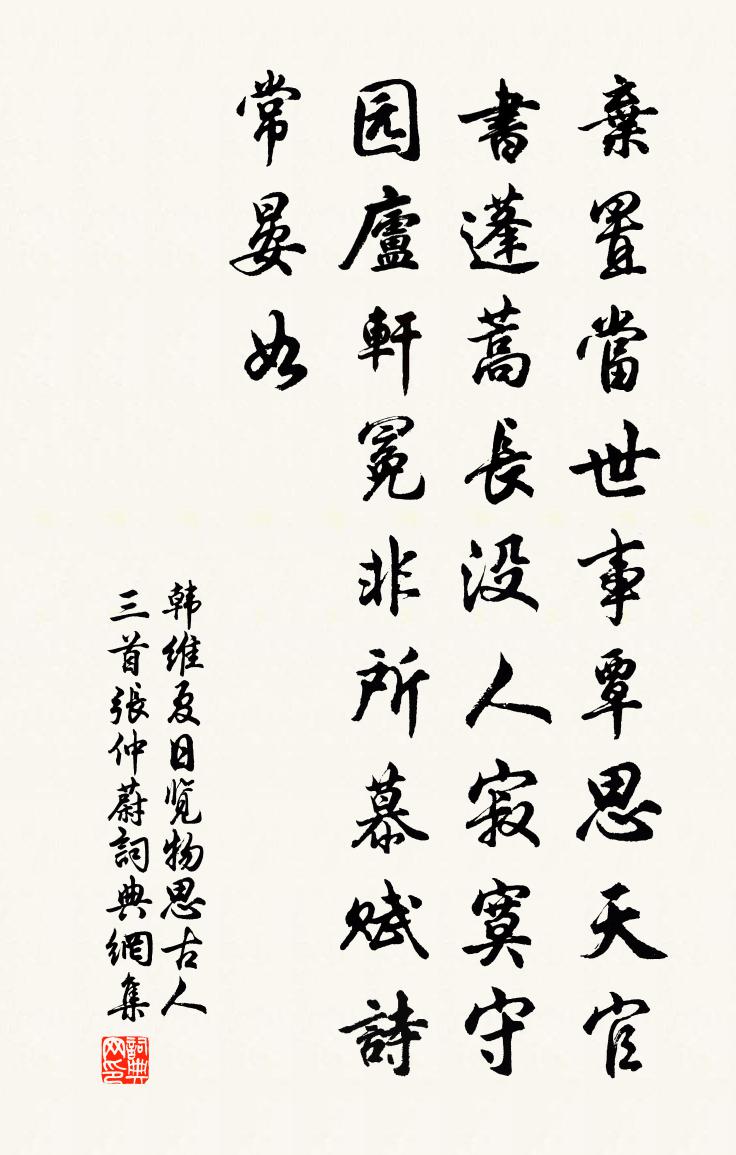 棄置當世事覃思天官
書蓬蒿長没人寂寞守
园廬軒冕非所慕賦詩
常晏如
韩维夏日览物思古人
三首張仲蔚詞典網集
詞典网印